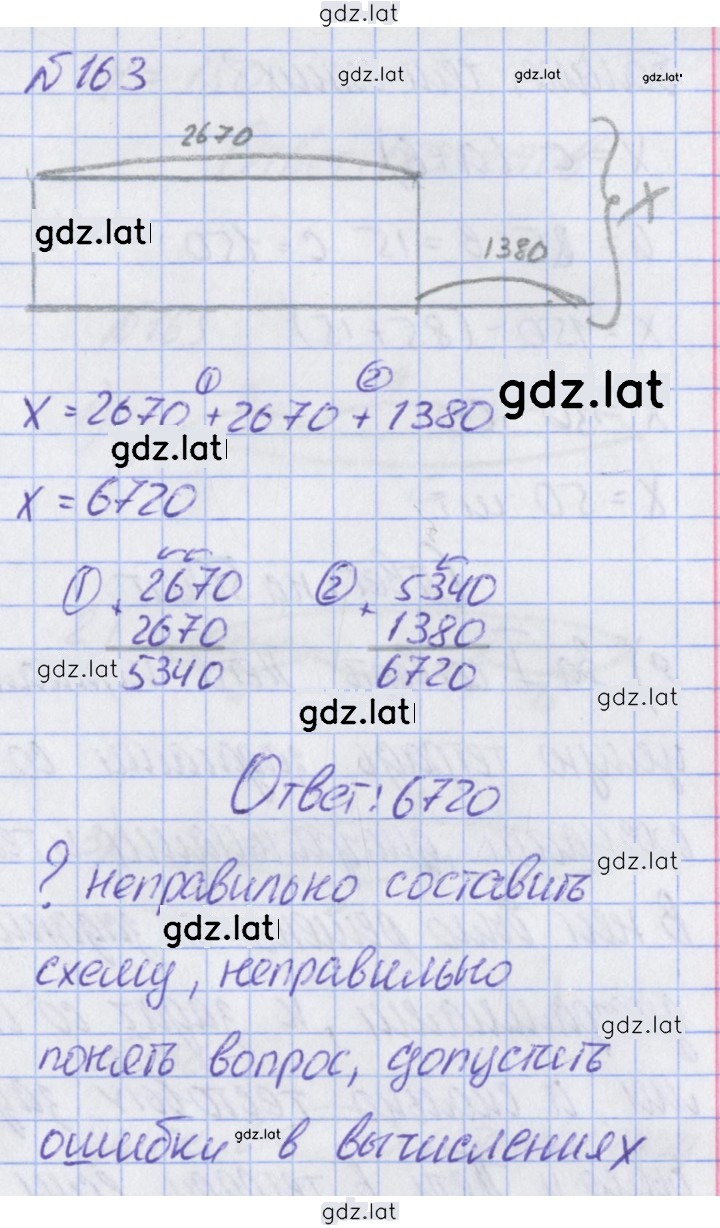 gdz.lat
№163
gdz.lat gdz.lat gdz.lat
2670
gdz.lat
X
1380
① ②
x = 2670 + 2670 + 1380
gdz.lat
gdz.lat
x = 6720
① 2670 ② 5340
+ +
2670 1380
5340 6720
gdz.lat
gdz.lat
gdz.lat
Ответ: 6720
? неправильно составить
gdz.lat
gdz.lat
схему, неправильно
gdz.lat
понять вопрос, допустить
ошибки gdz.lat в вычислениях
gdz.lat